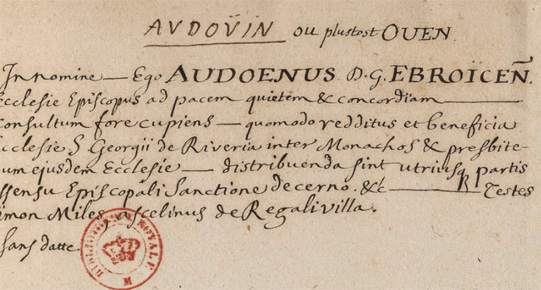 AUDOÜIN ou plustost OUEN.
In nomine — Ego AUDOENUS D. G. EBROÏCEÑ.
Ecclesie Episcopus ad pacem quietem & concordiam —
consultum fore cupiens — quomodo redditus et beneficia
Ecclesie S Georgii de Riveria inter Monachos & presbite-
um ejusdem Ecclesie — distribuenda sint utriusq partis
ssensu Episcopali Sanctione decerno. &c — Testes
imon Miles, scelinus de Regali villa.
sans datte.
BIBLIOTHECA ROYALE